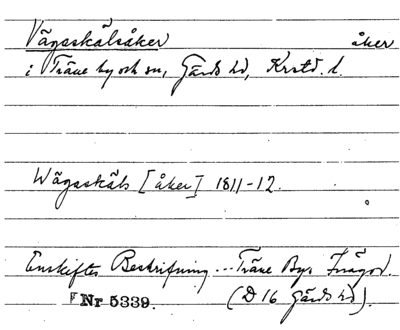 Vägaskälsåker åker
i Träne by och sn, Gärds hd, Krstd. l.
Wägaskäls [åker] 1811-12.
Enskiftes Beskrifning ... Träne Bys Inägor.
Nr 5339. (D 16 Gärds hd).